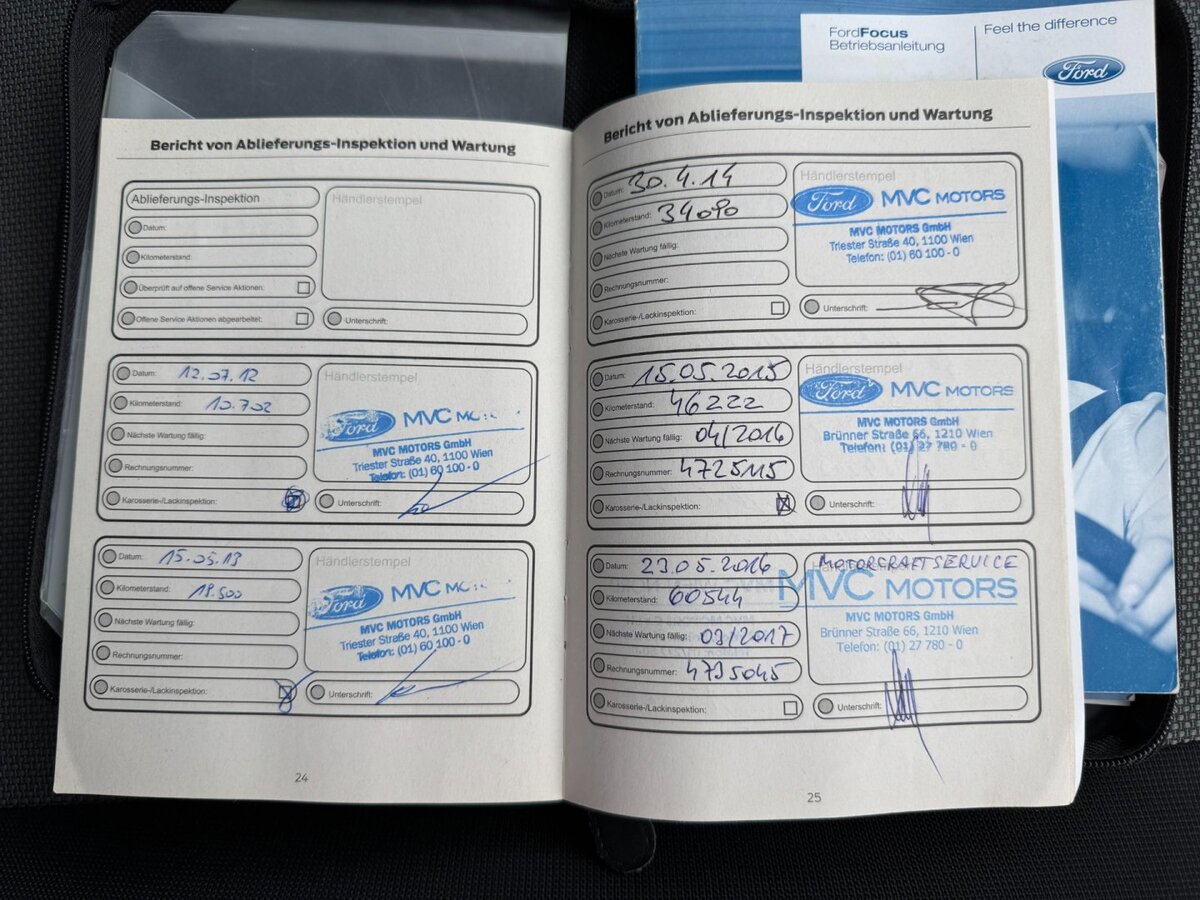 FordFocus
Betriebsanleitung
Feel the difference
Ford
Bericht von Ablieferungs-Inspektion und Wartung
Ablieferungs-Inspektion
Datum:
Kilometerstand:
Überprüft auf offene Service Aktionen:
Offene Service Aktionen abgearbeitet:
Händlerstempel
Unterschrift:
Datum: 12.07.12
Kilometerstand: 10.702
Nächste Wartung fällig:
Rechnungsnummer:
Karosserie-/Lackinspektion:
Händlerstempel
Ford MVC
MVC MOTORS GmbH
Triester Straße 40, 1100 Wien
Telefon: (01) 60 100 - 0
Unterschrift:
Datum: 15.05.13
Kilometerstand: 19.500
Nächste Wartung fällig:
Rechnungsnummer:
Karosserie-/Lackinspektion:
Händlerstempel
Ford MVC
MVC MOTORS GmbH
Triester Straße 40, 1100 Wien
Telefon: (01) 60 100 - 0
Unterschrift:
24
Bericht von Ablieferungs-Inspektion und Wartung
Datum: 30.4.14
Kilometerstand: 34090
Nächste Wartung fällig:
Rechnungsnummer:
Karosserie-/Lackinspektion:
Händlerstempel
Ford MVC MOTORS
MVC MOTORS GmbH
Triester Straße 40, 1100 Wien
Telefon: (01) 60 100 - 0
Unterschrift:
Datum: 15.05.2015
Kilometerstand: 46222
Nächste Wartung fällig: 04/2016
Rechnungsnummer: 4725115
Karosserie-/Lackinspektion:
Händlerstempel
Ford MVC MOTORS
MVC MOTORS GmbH
Brünner Straße 66, 1210 Wien
Telefon: (01) 27 780 - 0
Unterschrift:
Datum: 23.05.2016
Kilometerstand: 60544
Nächste Wartung fällig: 03/2017
Rechnungsnummer: 4735045
Karosserie-/Lackinspektion:
MOTORCRAFTSERVICE
MVC MOTORS
MVC MOTORS GmbH
Brünner Straße 66, 1210 Wien
Telefon: (01) 27 780 - 0
Unterschrift:
25